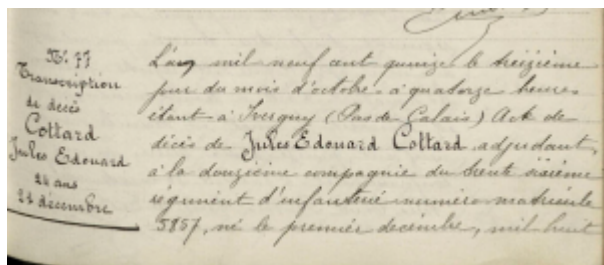 N° 77
Transcription
de décès
Cottard
Jules Edouard
24 ans
21 décembre
L'an mil neuf cent quinze le treizième
jour du mois d'octobre à quatorze heures
étant à Ivergny (Pas de Calais) Acte de
décès de Jules Edouard Cottard adjudant
à la douzième compagnie du trente sixième
régiment d'infanterie numéro matricule
5857, né le premier décembre, mil huit